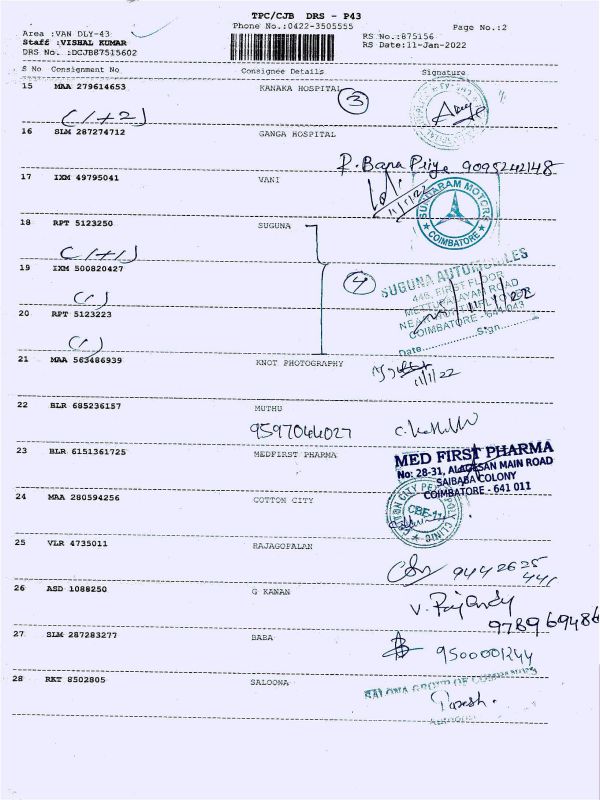 TPC/CJB DRS - P43
Phone No.:0422-3505555
Page No.:2
Area :VAN DLY-43
Staff :VISHAL KUMAR
DRS No. :DCJB87515602
RS No.:875156
RS Date:11-Jan-2022
S No Consignment No Consignee Details Signature
15 MAA 279614653 KANAKA HOSPITAL 3
(1+2)
16 SLM 287274712 GANGA HOSPITAL
9095242148
17 IXM 49795041 VANI
11/1/22
SUNDARAM MOTORS
COIMBATORE
18 RPT 5123250 SUGUNA
(1+1)
19 IXM 500820427 4
(1)
SUGUNA AUTOMOBILES
446, FIRST FLOOR
COIMBATORE - 641 043
Date Sign.
20 RPT 5123223
(1)
21 MAA 563486939 KNOT PHOTOGRAPHY
11/1/22
22 BLR 685236157 MUTHU
9597044027
23 BLR 6151361725 MEDFIRST PHARMA
MED FIRST PHARMA
No: 28-31, ALAGESAN MAIN ROAD
SAIBABA COLONY
COIMBATORE - 641 011
24 MAA 280594256 COTTON CITY
COTTON CITY
POLY CLINIC
CBE-11
25 VLR 4735011 RAJAGOPALAN
9442625
441
26 ASD 1088250 G KANAN
978969486
27 SLM 287283277 BABA
9500001244
28 RKT 8502805 SALOONA
SALONA GROUP OF COMPANIES